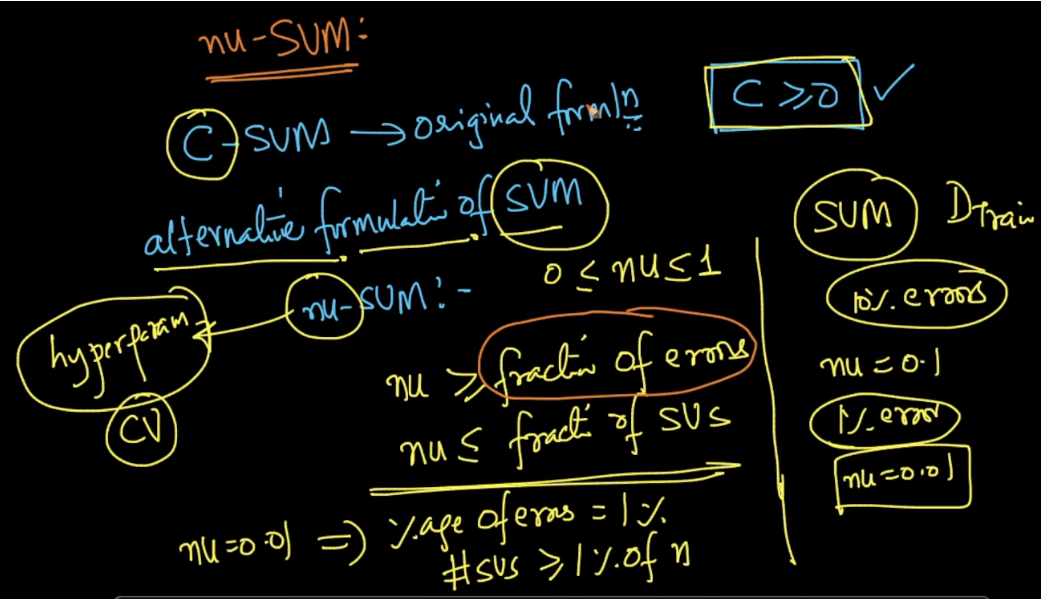 nu-SVM:
C-SVMs → original formln
C ≥ 0 ✓
alternative formulatin of SVM
nu-SVM:-
0 ≤ nu ≤ 1
hyperparam
CV
nu ≥ fractin of errors
nu ≤ fractn of SVs
nu=0.01 ⇒ %age of errors = 1%
#SVs ≥ 1% of n
SVM DTrain
10% errors
nu = 0.1
1% error
nu=0.01